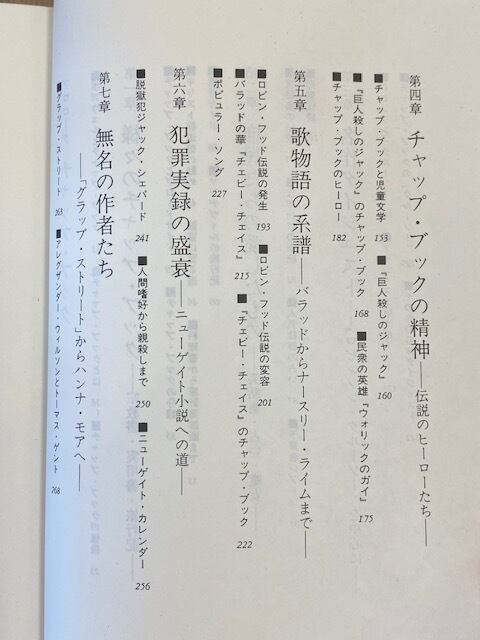 第四章 チャップ・ブックの精神——伝説のヒーローたち——
■チャップ・ブックと児童文学 153 ■『巨人殺しのジャック』 160
■『巨人殺しのジャック』のチャップ・ブック 168 ■民衆の英雄『ウォリックのガイ』 175
■チャップ・ブックのヒーロー 182
第五章 歌物語の系譜——バラッドからナースリー・ライムまで——
■ロビン・フッド伝説の発生 193 ■ロビン・フッド伝説の変容 201
■バラッドの華『チェビー・チェイス』 215 ■『チェビー・チェイス』のチャップ・ブック 222
■ポピュラー・ソング 227
第六章 犯罪実録の盛衰——ニューゲイト小説への道——
■脱獄犯ジャック・シェパード 241 ■人間嗜好から親殺しまで 250 ■ニューゲイト・カレンダー 256
第七章 無名の作者たち
——「グラッブ・ストリート」からハンナ・モアへ——
■グラッブ・ストリート 263 ■アレグザンダー・ウィルソンとトーマス・ゲント 268